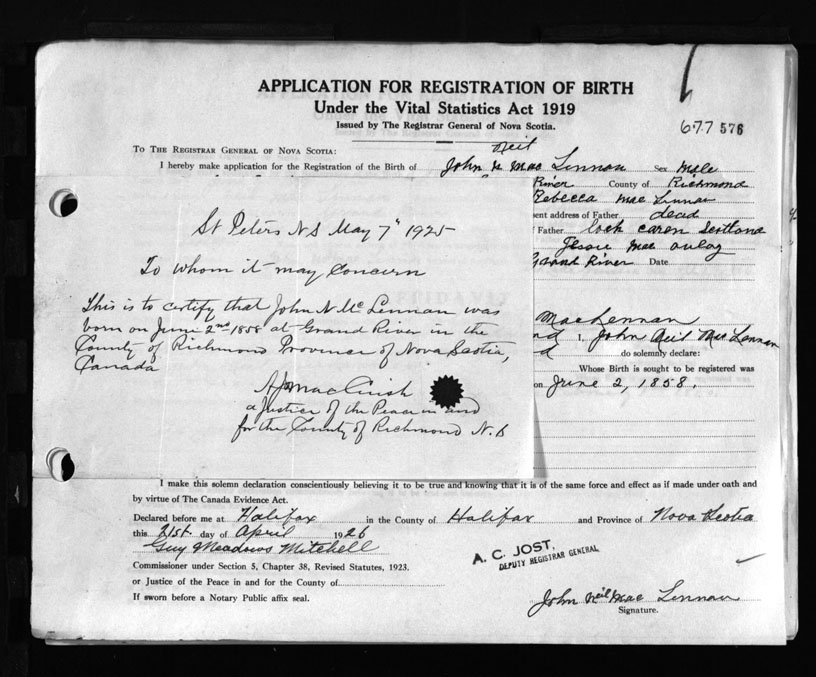 APPLICATION FOR REGISTRATION OF BIRTH
Under the Vital Statistics Act 1919
Issued by The Registrar General of Nova Scotia.
677 576
To The Registrar General of Nova Scotia:
Neil
I hereby make application for the Registration of the Birth of John N Mac Lennan Sex Male
River County of Richmond
Rebecca Mac Lennan
sent address of Father dead
Father loch caren Scotland
Jessie Mac aulay
Grand River Date
St Peters N S May 7" 1925
To whom it may Concern
This is to certify that John N Mc Lennan was
born on June 2nd 1858 at Grand River in the
County of Richmond Province of Nova Scotia,
Canada
a Justice of the Peace in and
for the County of Richmond N.S
AFFIDAVIT
MacLennan
I, John Neil Mac Lennan
do solemnly declare:
Whose Birth is sought to be registered was
on June 2, 1858.
I make this solemn declaration conscientiously believing it to be true and knowing that it is of the same force and effect as if made under oath and
by virtue of The Canada Evidence Act.
Declared before me at Halifax in the County of Halifax and Province of Nova Scotia
this 21st day of April 1926
Guy Meadows Mitchell
Commissioner under Section 5, Chapter 38, Revised Statutes, 1923.
or Justice of the Peace in and for the County of
If sworn before a Notary Public affix seal.
A. C. JOST,
DEPUTY REGISTRAR GENERAL
John Neil Mac Lennan
Signature.